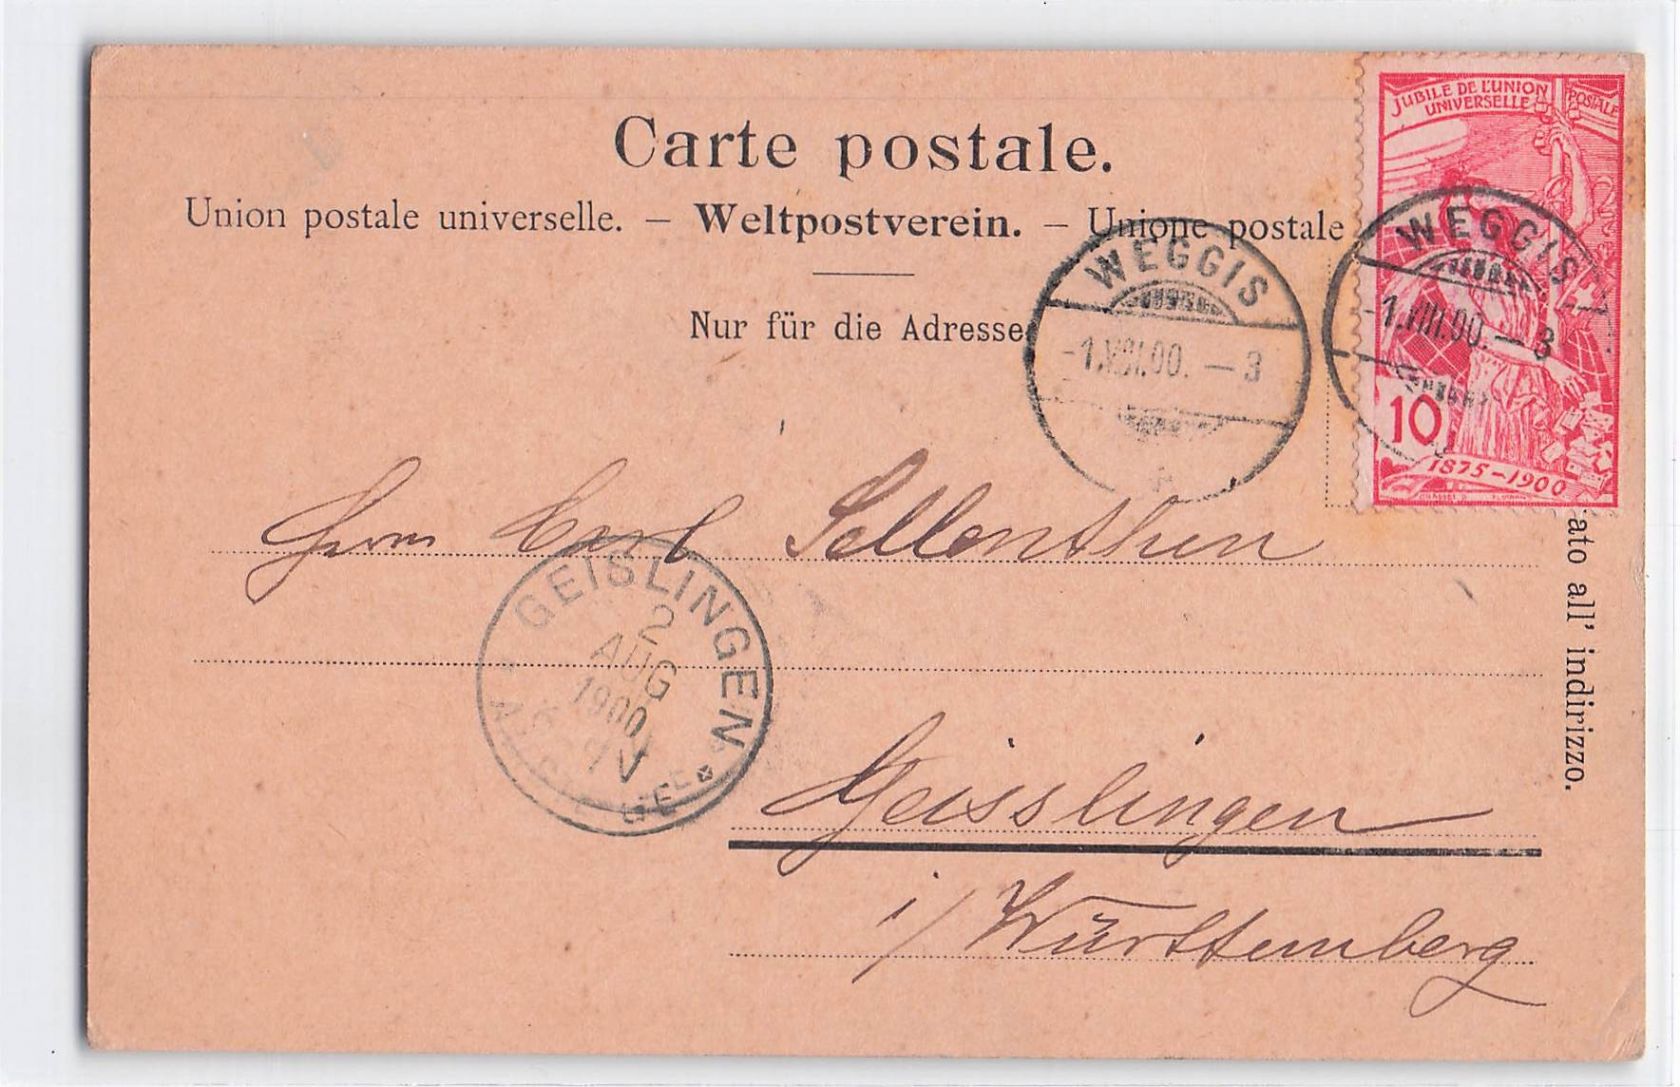 Carte postale.
Union postale universelle. – Weltpostverein. – Unione postale
Nur für die Adresse
JUBILE DE L'UNION POSTALE
UNIVERSELLE
10
1875–1900
WEGGIS
-1.VIII.00.–3
WEGGIS
-1.VIII.00.–3
Herrn Carl Sellenthin
GEISLINGEN
2
AUG
1900
Geisslingen
i/Württemberg
ato all' indirizzo.